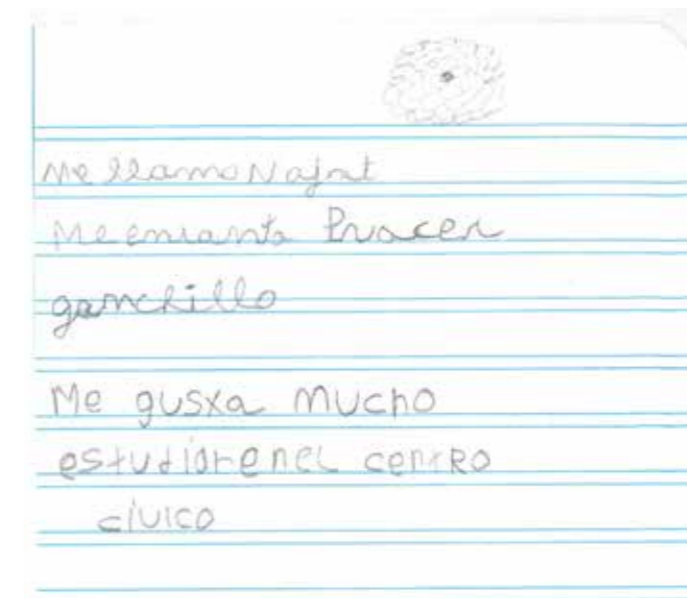 Me llamo Najat
Me encanta hacer
ganchillo
Me gusxa mucho
estudiar en el centro
cívico